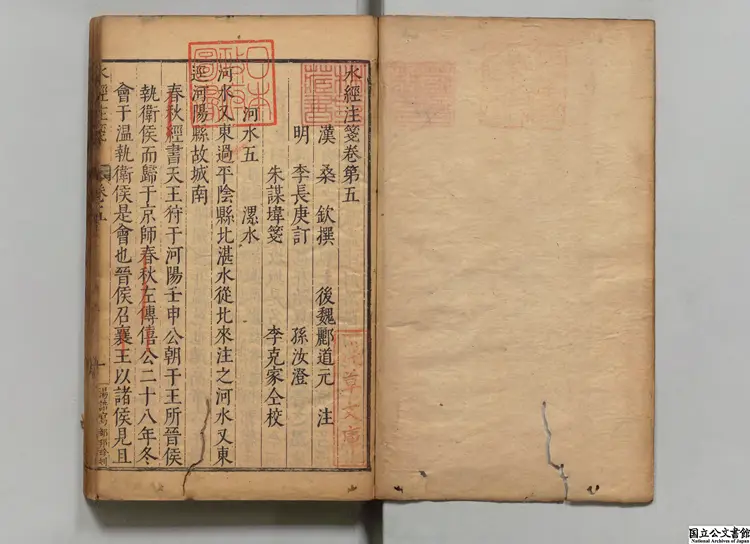 水經注箋卷第五
漢 桑 欽撰 後魏酈道元 注
明 李長庚訂 孫汝澄
朱謀㙔箋 李克家仝校
河水五 漯水
河水又東過平陰縣北湛水從北來注之河水又東
逕河陽縣故城南
春秋經書天王狩于河陽壬申公朝于王所晉侯
執衛侯而歸于京師春秋左傳僖公二十八年冬
會于溫執衛侯是會也晉侯召襄王以諸侯見且
水經注箋 卷五 一
日本
草文庫
国立公文書館
National Archives of Japan